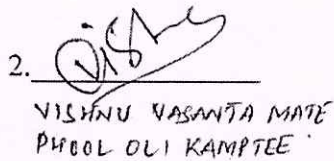 2. Vishnu
VISHNU VASANTA MATE
PHOOL OLI KAMPTEE